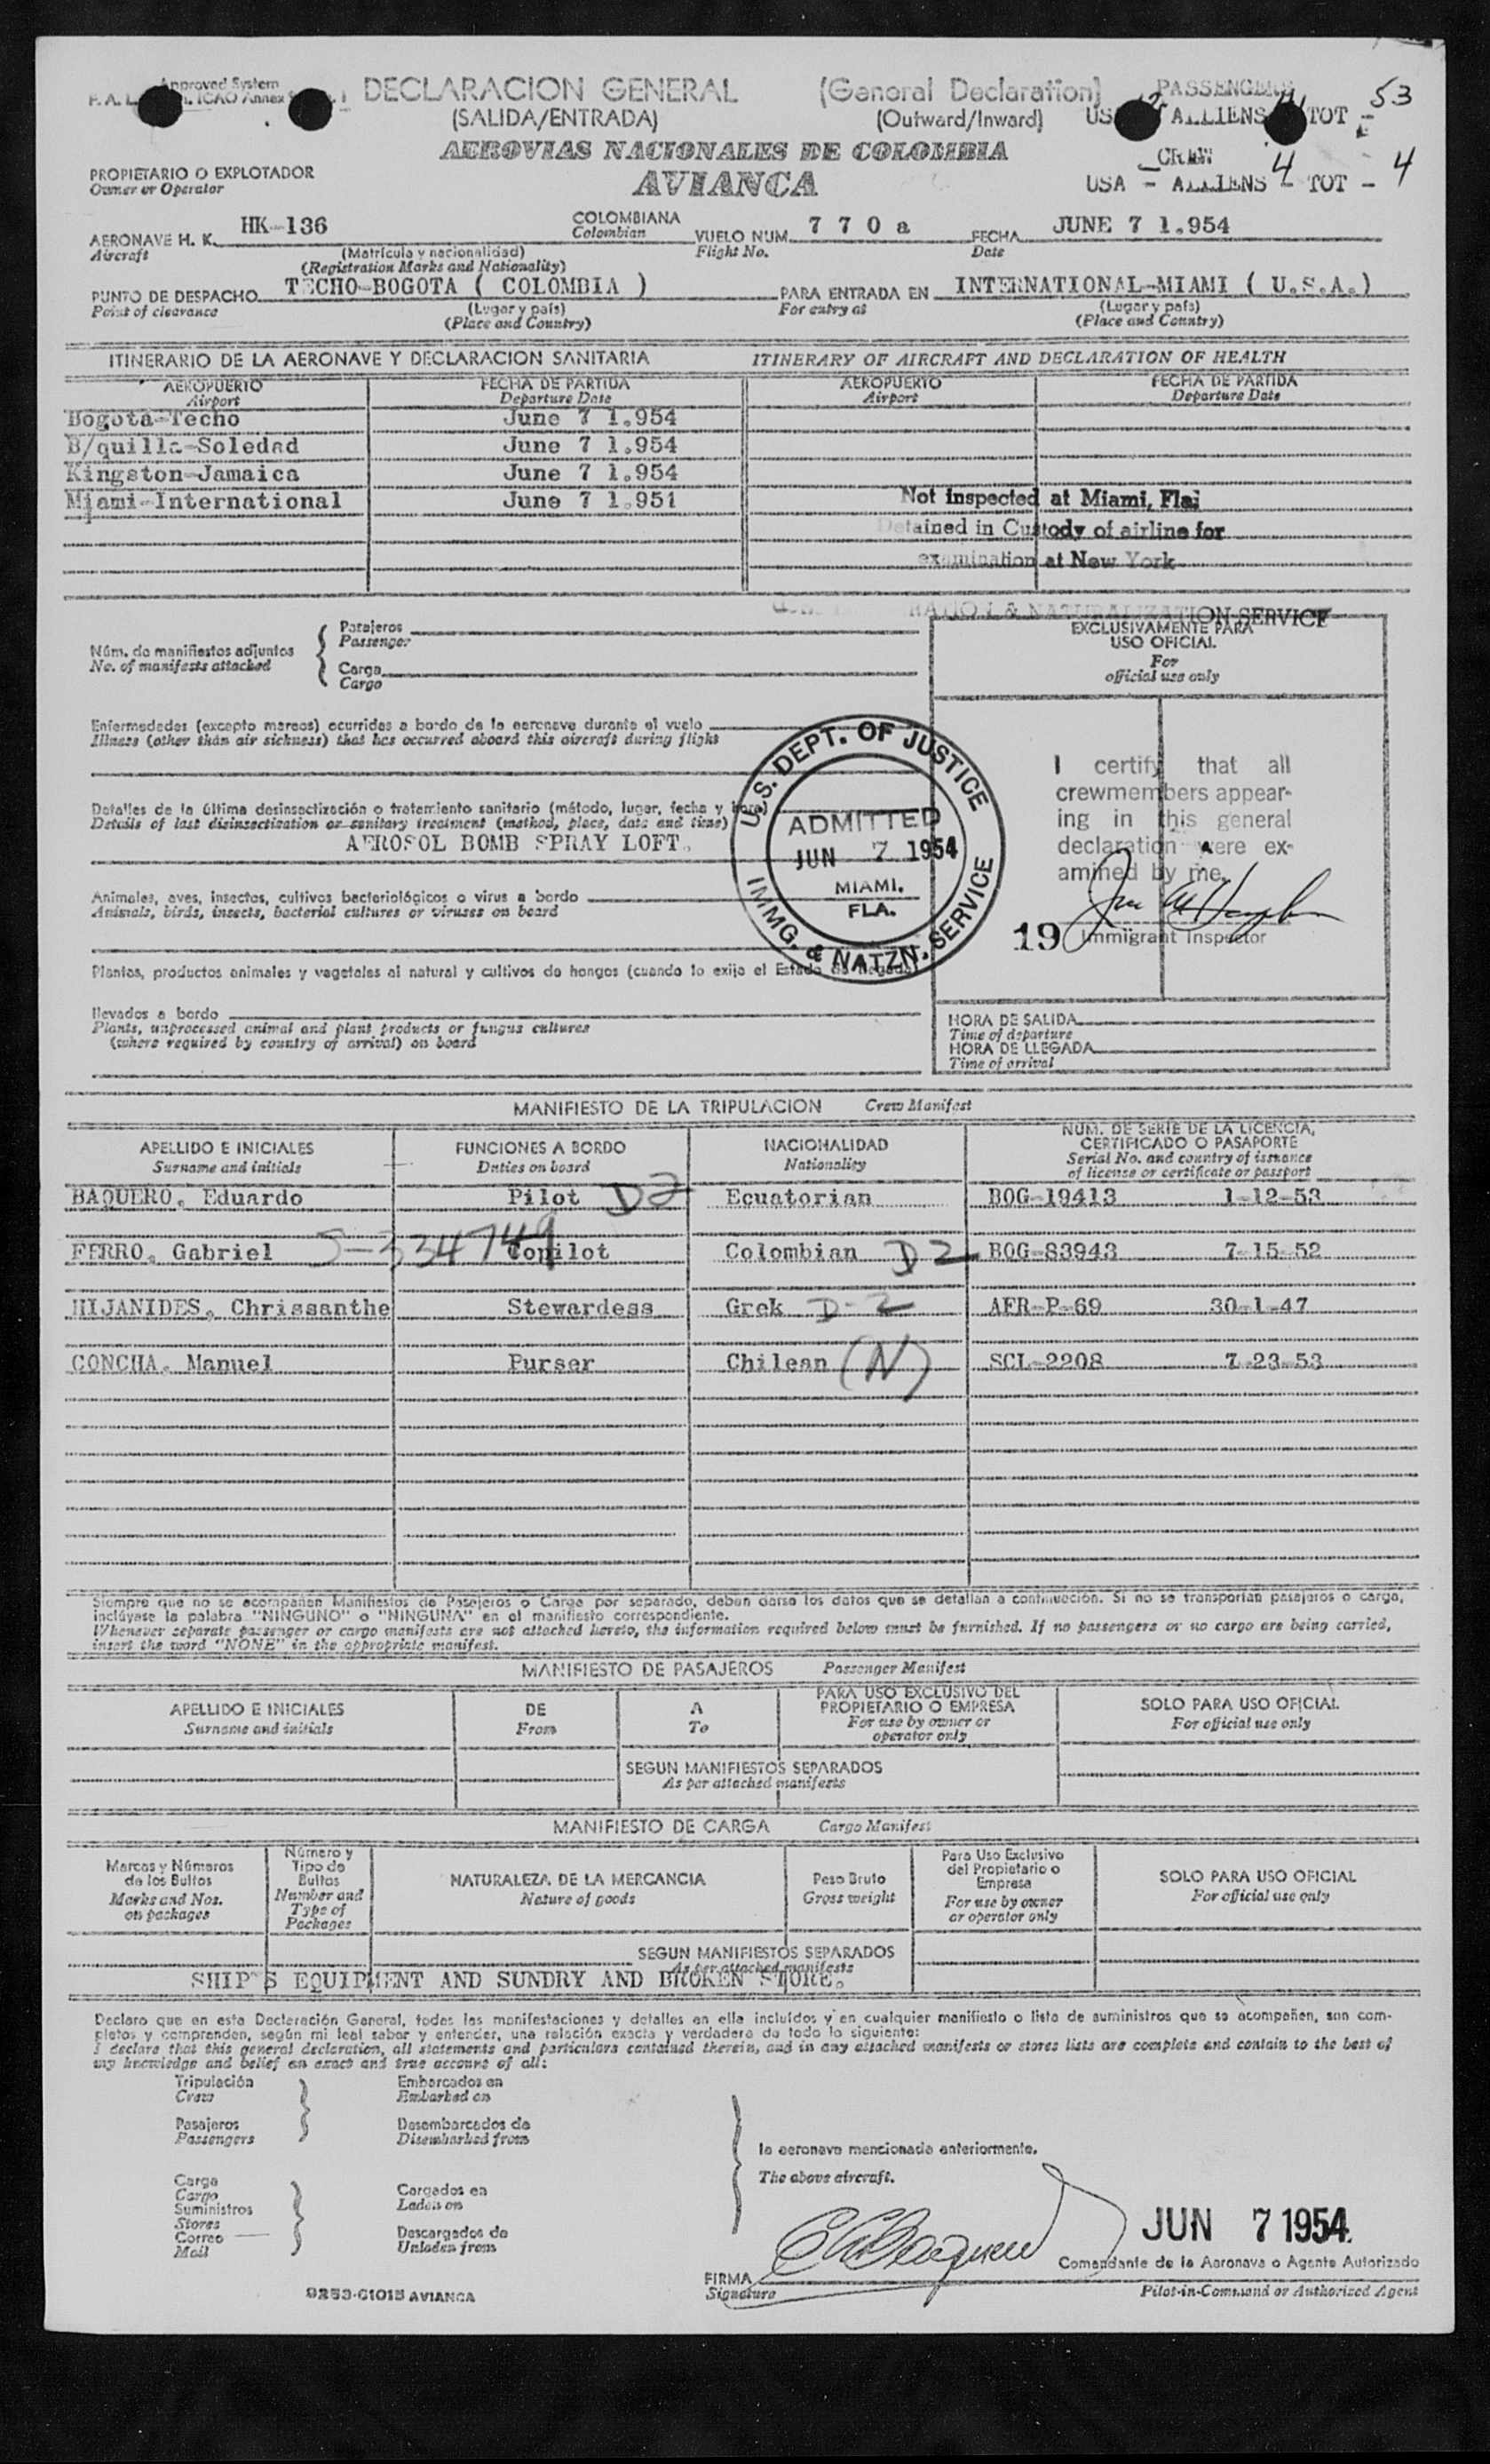 Approved System
F. A. L. ICAO Annex
DECLARACION GENERAL (General Declaration)
(SALIDA/ENTRADA) (Outward/Inward)
PASSENGERS
US ALLIENS TOT - 53
AEROVIAS NACIONALES DE COLOMBIA
AVIANCA
CREW
USA - ALLIENS 4 - TOT - 4
PROPIETARIO O EXPLOTADOR
Owner or Operator
AERONAVE H. K. HK-136 COLOMBIANA VUELO NUM. 7 7 0 a FECHA JUNE 7 1.954
Aircraft Colombian Flight No. Date
(Matrícula y nacionalidad)
(Registration Marks and Nationality)
PUNTO DE DESPACHO TECHO-BOGOTA ( COLOMBIA ) PARA ENTRADA EN INTERNATIONAL-MIAMI ( U.S.A.)
Point of clearance (Lugar y país) For entry at (Lugar y país)
(Place and Country) (Place and Country)
ITINERARIO DE LA AERONAVE Y DECLARACION SANITARIA ITINERARY OF AIRCRAFT AND DECLARATION OF HEALTH
AEROPUERTO FECHA DE PARTIDA AEROPUERTO FECHA DE PARTIDA
Airport Departure Date Airport Departure Date
Bogota-Techo June 7 1.954
B/quilla-Soledad June 7 1.954
Kingston-Jamaica June 7 1.954
Miami-International June 7 1.951
Not inspected at Miami, Fla;
Detained in Custody of airline for
examination at New York
NATURALIZATION SERVICE
Núm. de manifiestos adjuntos
No. of manifests attached
Pasajeros
Passenger
Carga
Cargo
EXCLUSIVAMENTE PARA
USO OFICIAL
For
official use only
Enfermedades (excepto mareos) ocurridas a bordo de la aeronave durante el vuelo
Illness (other than air sickness) that has occurred aboard this aircraft during flight
Detalles de la última desinsectización o tratamiento sanitario (método, lugar, fecha y hora)
Details of last disinsectization or sanitary treatment (method, place, date and time)
AEROSOL BOMB SPRAY LOFT.
U.S. DEPT. OF JUSTICE
ADMITTED
JUN 7 1954
MIAMI,
FLA.
IMMG. & NATZN. SERVICE
I certify that all
crewmembers appear-
ing in this general
declaration were ex-
amined by me.
19 Immigrant Inspector
Animales, aves, insectos, cultivos bacteriológicos o virus a bordo
Animals, birds, insects, bacterial cultures or viruses on board
Plantas, productos animales y vegetales al natural y cultivos de hongos (cuando lo exija el Estado de llegada)
llevados a bordo
Plants, unprocessed animal and plant products or fungus cultures
(where required by country of arrival) on board
HORA DE SALIDA
Time of departure
HORA DE LLEGADA
Time of arrival
MANIFIESTO DE LA TRIPULACION Crew Manifest
APELLIDO E INICIALES FUNCIONES A BORDO NACIONALIDAD NUM. DE SERIE DE LA LICENCIA, CERTIFICADO O PASAPORTE
Surname and initials Duties on board Nationality Serial No. and country of issuance of license or certificate or passport
BAQUERO, Eduardo Pilot D2 Ecuatorian BOG-19413 1-12-53
FERRO, Gabriel 5-334749 Copilot Colombian D2 BOG-83943 7-15-52
HIJANIDES, Chrissanthe Stewardess Grek D-2 AFR-P-69 30-1-47
CONCHA, Manuel Purser Chilean (N) SCL-2208 7-23-53
Siempre que no se acompañen Manifiestos de Pasajeros o Carga por separado, deben darse los datos que se detallan a continuación. Si no se transportan pasajeros o carga,
inclúyase la palabra "NINGUNO" o "NINGUNA" en el manifiesto correspondiente.
Whenever separate passenger or cargo manifests are not attached hereto, the information required below must be furnished. If no passengers or no cargo are being carried,
insert the word "NONE" in the appropriate manifest.
MANIFIESTO DE PASAJEROS Passenger Manifest
APELLIDO E INICIALES DE A PARA USO EXCLUSIVO DEL PROPIETARIO O EMPRESA SOLO PARA USO OFICIAL
Surname and initials From To For use by owner or operator only For official use only
SEGUN MANIFIESTOS SEPARADOS
As per attached manifests
MANIFIESTO DE CARGA Cargo Manifest
Marcas y Números de los Bultos Número y Tipo de Bultos NATURALEZA DE LA MERCANCIA Peso Bruto Para Uso Exclusivo del Propietario o Empresa SOLO PARA USO OFICIAL
Marks and Nos. on packages Number and Type of Packages Nature of goods Gross weight For use by owner or operator only For official use only
SEGUN MANIFIESTOS SEPARADOS
As per attached manifests
SHIP'S EQUIPMENT AND SUNDRY AND BROKEN STORE.
Declaro que en esta Declaración General, todas las manifestaciones y detalles en ella incluídos y en cualquier manifiesto o lista de suministros que se acompañen, son com-
pletos y comprenden, según mi leal saber y entender, una relación exacta y verdadera de todo lo siguiente:
I declare that this general declaration, all statements and particulars contained therein, and in any attached manifests or stores lists are complete and contain to the best of
my knowledge and belief an exact and true account of all:
Tripulación Embarcados en
Crew Embarked on
Pasajeros Desembarcados de
Passengers Disembarked from
la aeronave mencionada anteriormente.
The above aircraft.
Carga
Cargo
Suministros
Stores
Correo
Mail
Cargados en
Laden on
Descargados de
Unladen from
JUN 7 1954
FIRMA Comandante de la Aeronave o Agente Autorizado
Signature Pilot-in-Command or Authorized Agent
9253-C1015 AVIANCA